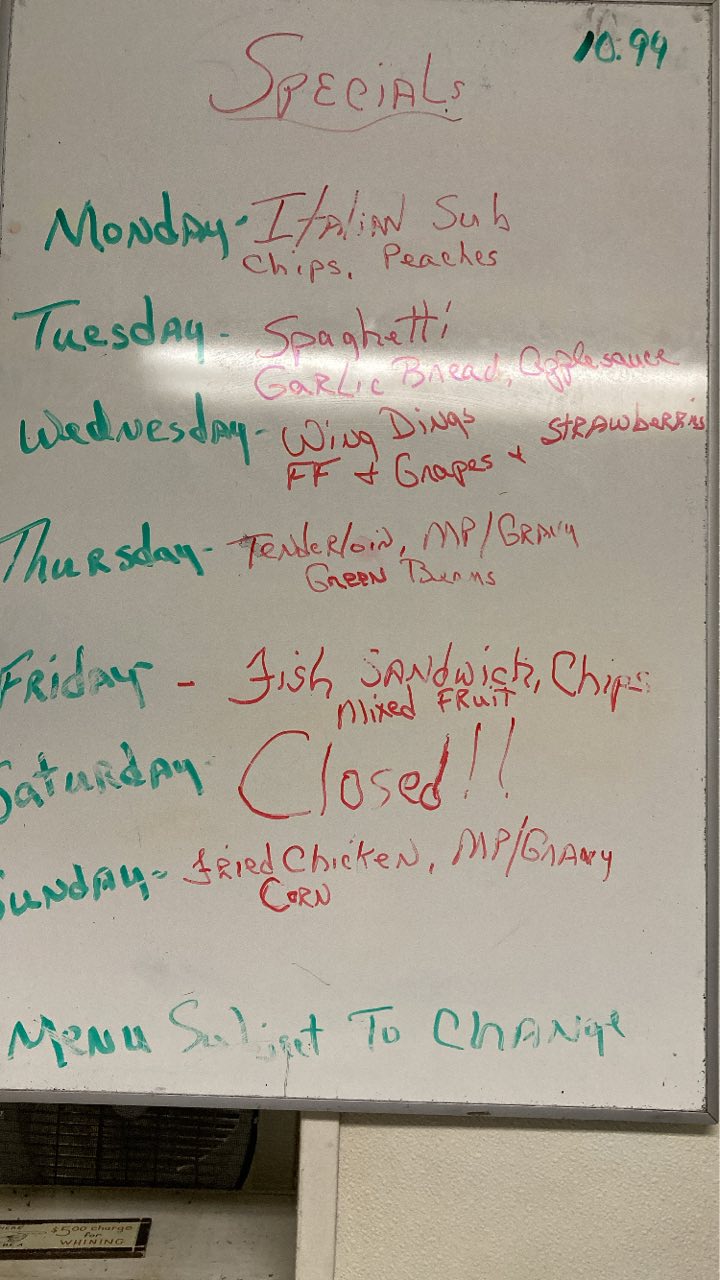 10.99
Specials
Monday - Italian Sub
Chips, Peaches
Tuesday - Spaghetti
Garlic Bread, Applesauce
Wednesday - Wing Dings
FF + Grapes + Strawberries
Thursday - Tenderloin, MP/Gravy
Green Beans
Friday - Fish Sandwich, Chips
Mixed Fruit
Saturday - Closed!!
Sunday - Fried Chicken, MP/Gravy
Corn
Menu Subject To Change
$5.00 charge
for
WHINING